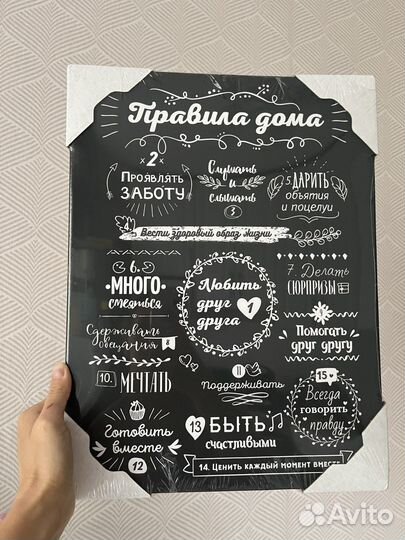 Правила дома
× 2 ×
Проявлять
заботу
Слушать
и
слышать
3
5. Дарить
объятия
и поцелуи
Вести здоровый образ жизни
6.
много
смеяться
Любить
друг
друга
1
7. Делать
сюрпризы
Помогать
друг другу
Сдерживать
обещания
10. Мечтать
11
Поддерживать
15
Всегда
говорить
правду
Готовить
вместе
12
13 Быть
счастливыми
14. Ценить каждый момент вместе
Avito